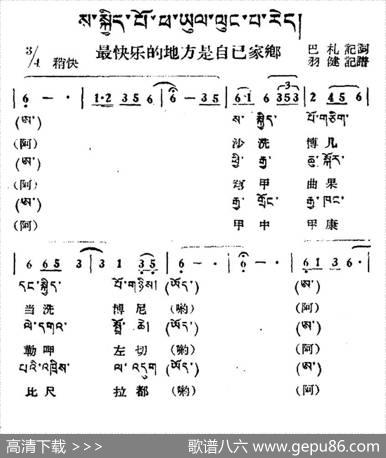 ས་སྐྱིད་པོ་ཕ་ཡུལ་ལུང་པ་རེད།
3/4 稍快 最快乐的地方是自己家鄉 巴札記詞
羽健記譜
6 - - | 1·2 3 5 6 | 6 - 3 5 | 6 1 6 3 5 3 | 2 4 5 6 |
(ཨ་) ས་སྐྱིད་ པོ་གཅིག་
(阿) 沙洗 博几
(ཨ་) ཕྱི་རྒྱ་ ཆུ་སྐོར་
(阿) 穷甲 曲果
(ཨ་) རྒྱ་གྲོང་ རྒྱ་ཁང་
(阿) 甲中 甲康
| 6 6 5 3 | 3 1 3 5 | 6 - · | 6 - · | 6 1 3 6 · |
དང་སྐྱིད་ པོ་གཉིས། (ཨོད་) (ཨ་)
当洗 博尼 (喲) (阿)
ལེ་དགའ་ སྤྲོ་ཆེ། (ཨོད་) (ཨ་)
勒呷 左切 (喲) (阿)
པའི་འཁྲིས་ ལ་འདུག (ཨོད་) (ཨ་)
比尺 拉都 (喲) (阿)
高清下载 >>> 歌谱八六 www.gepu86.com